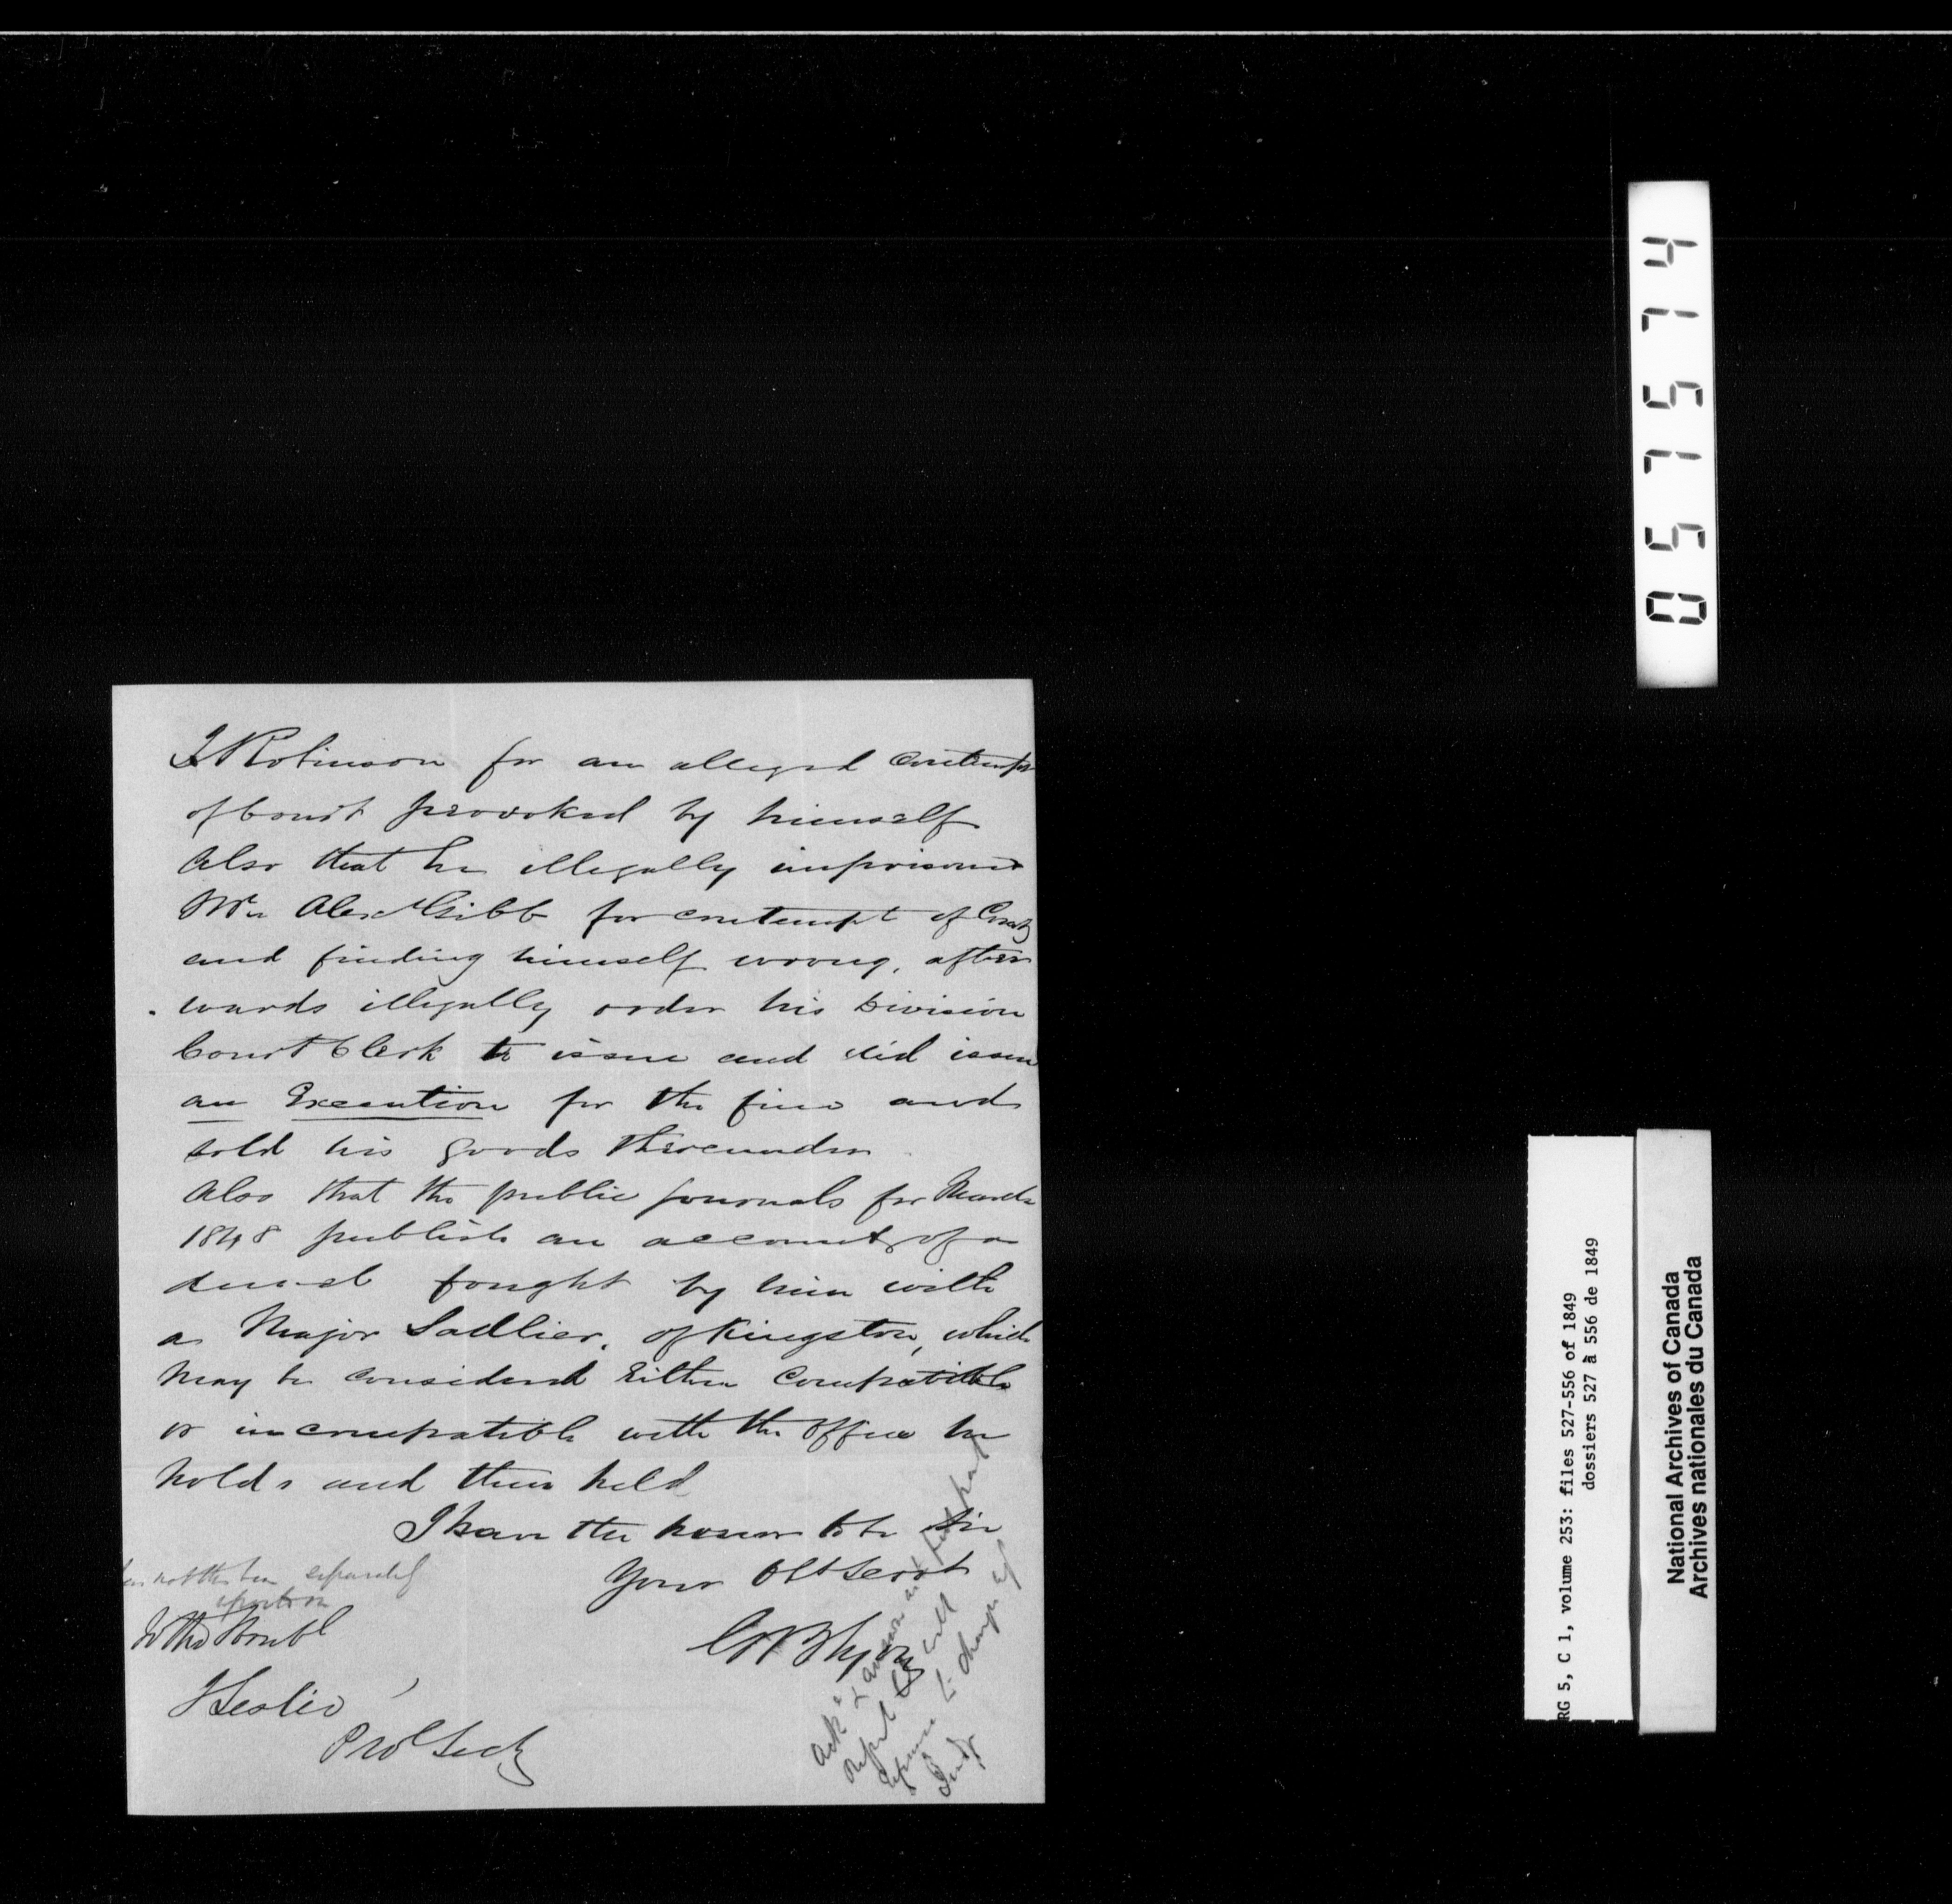 J Robinson for an alleged contempt
of Court provoked by himself
Also that he illegally imprisoned
Mr Alex McGibb for contempt of Court
and finding himself wrong, after
wards illegally order his Division
Court Clerk to issue and did issue
an Execution for the fine and
sold his goods thereunder
Also that the public journals for March
1848 publish an account of a
duel fought by him with
a Major Sadlier, of Kingston, which
may be considered Either Compatible
or incompatible with the office he
holds and then held
I have the honor to be Sir
Your Obt Servt
To the Honble
J Leslie
Provl Secty
057574
RG 5, C 1, volume 253: files 527-556 of 1849
dossiers 527 à 556 de 1849
National Archives of Canada
Archives nationales du Canada